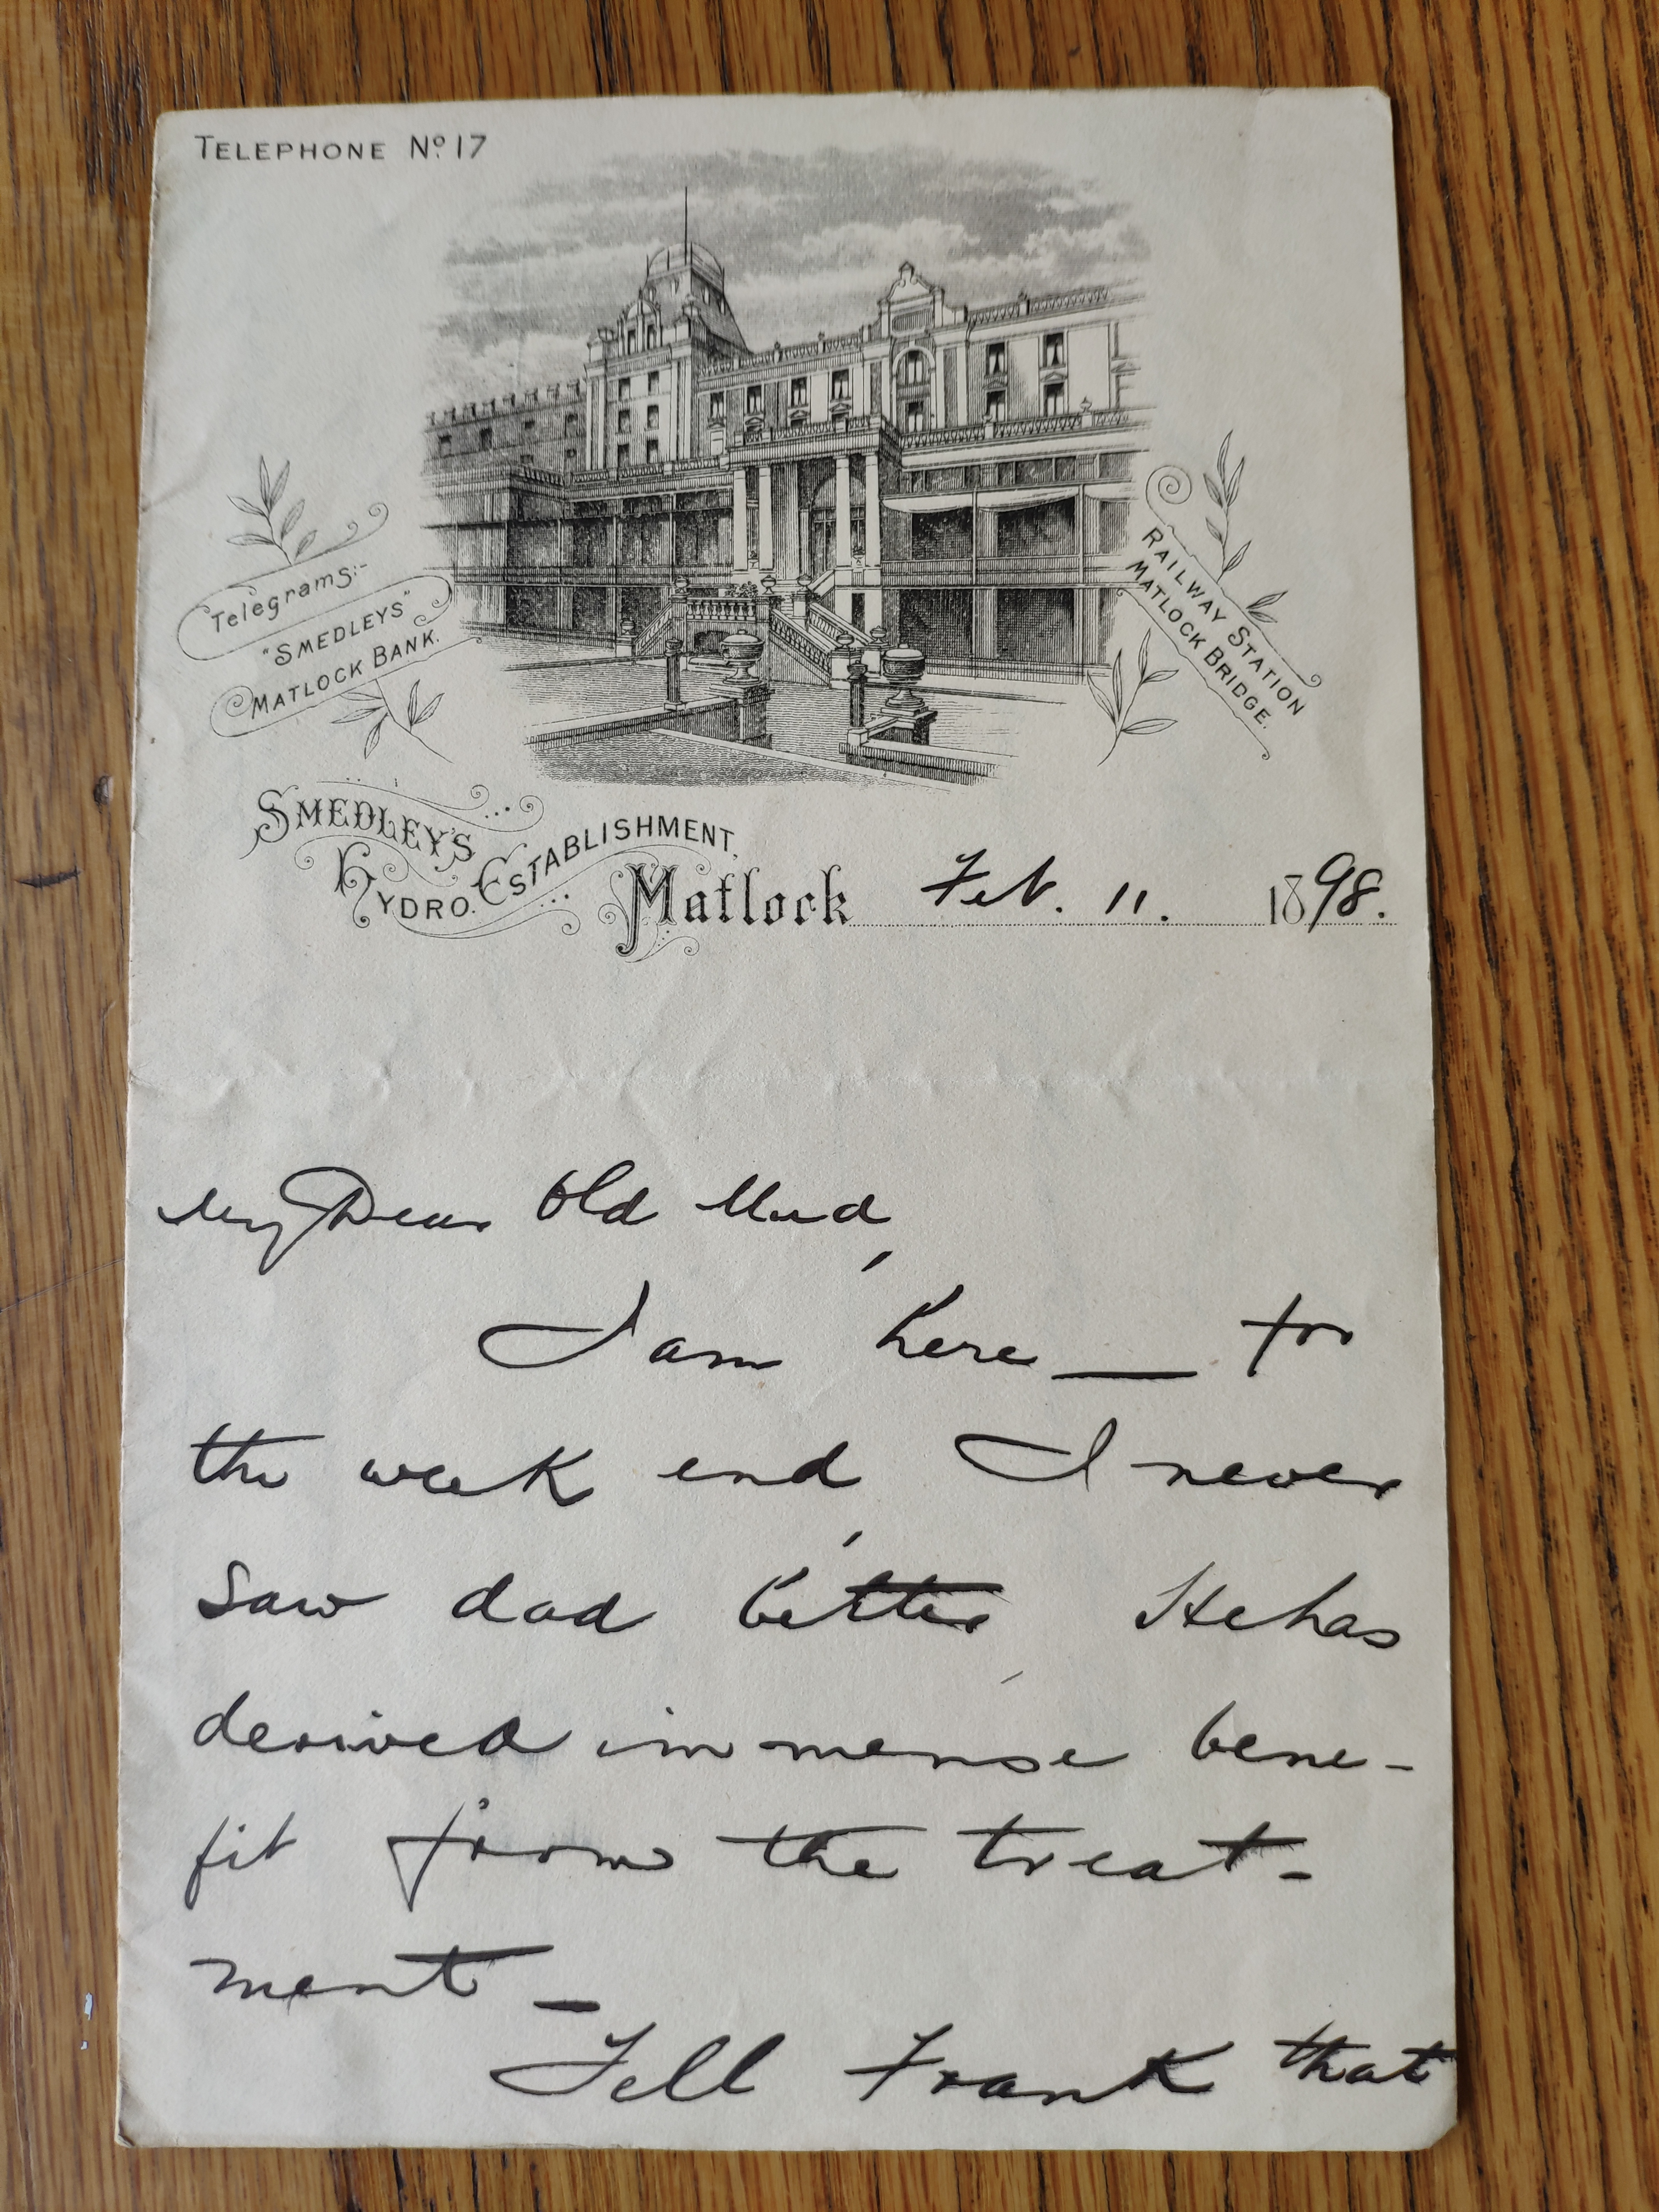 TELEPHONE Nº 17
Telegrams:-
"SMEDLEYS"
MATLOCK BANK.
RAILWAY STATION
MATLOCK BRIDGE.
SMEDLEY'S
HYDRO. ESTABLISHMENT,
Matlock Feb. 11. 1898.
My Dear Old Mud,
I am here — for
the week end I never
saw dad better He has
derived immense bene-
fit from the treat-
ment –
Tell Frank that